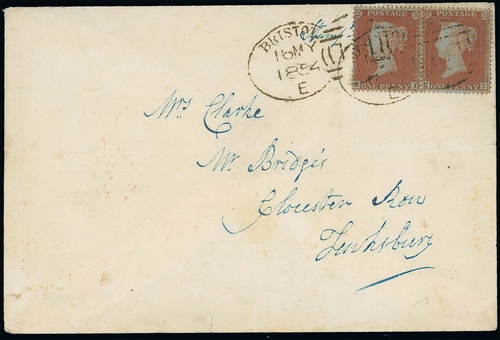 BRISTOL
16MY
1854
E
POSTAGE POSTAGE
ONE PENNY ONE PENNY
Mrs Clarke
Mr Bridges
Glocester Row
Tewksbury